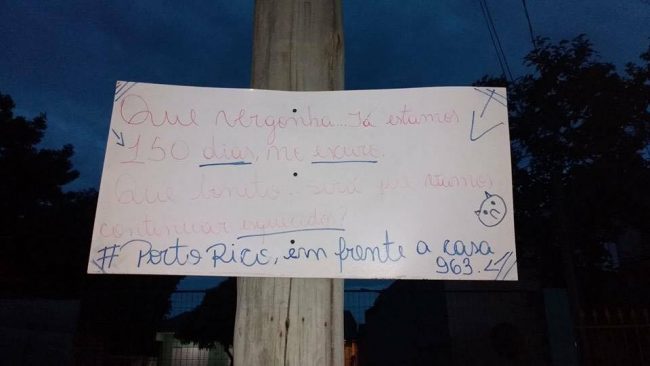 Que vergonha... Já estamos
150 dias, no escuro.
Que bonito... será que vamos
continuar esquecidos?
# Porto Rico, em frente a casa
963.